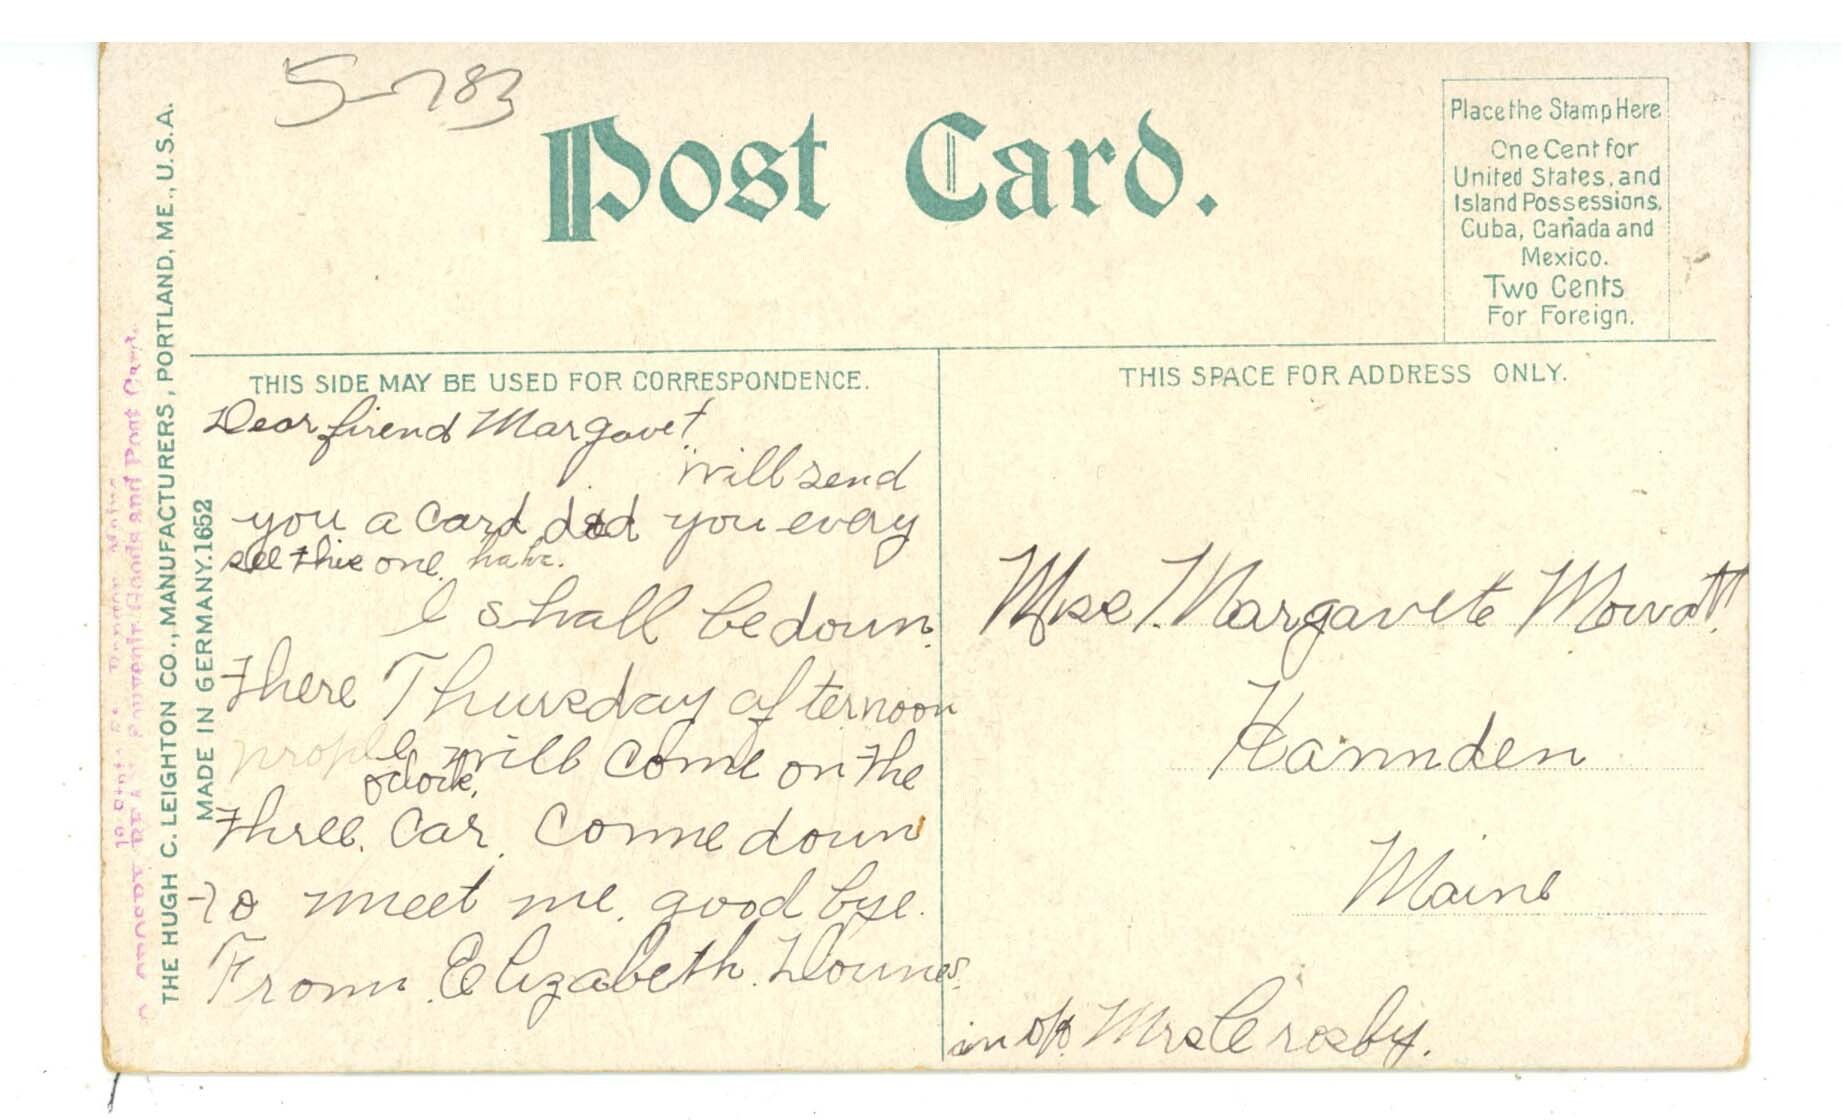 5-783
Post Card.
Place the Stamp Here
One Cent for
United States, and
Island Possessions,
Cuba, Canada and
Mexico.
Two Cents
For Foreign.
THIS SIDE MAY BE USED FOR CORRESPONDENCE.
Dear firend Margaret
Will send
you a card did you every
see this one haha.
I shall be down
there Thursday afternoon
will come on the
oclock
three. Car. Come down
to meet me. good bye.
From Elizabeth Downes.
THIS SPACE FOR ADDRESS ONLY.
Miss. Margarete Mowatt
Hamnden
Maine
in Mrs Crosby.
THE HUGH C. LEIGHTON CO., MANUFACTURERS, PORTLAND, ME., U.S.A.
MADE IN GERMANY. 1652
Souvenir Goods and Post Card.